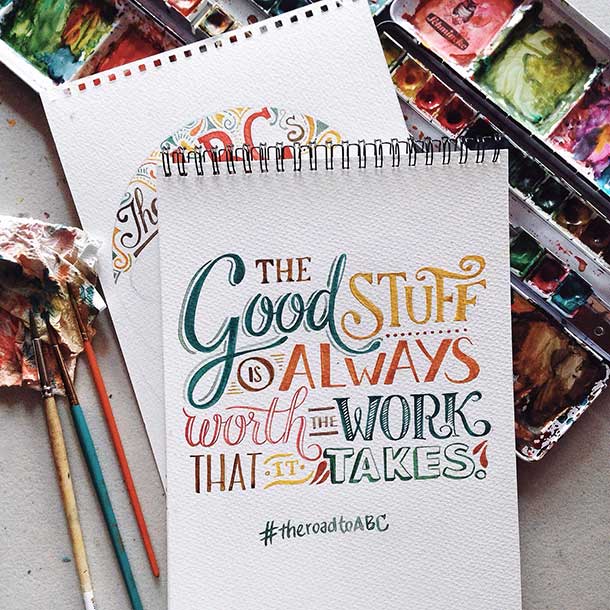 The ABC's
THE
Good STUFF
IS ALWAYS
worth THE WORK
THAT IT TAKES.
#theroadtoABC